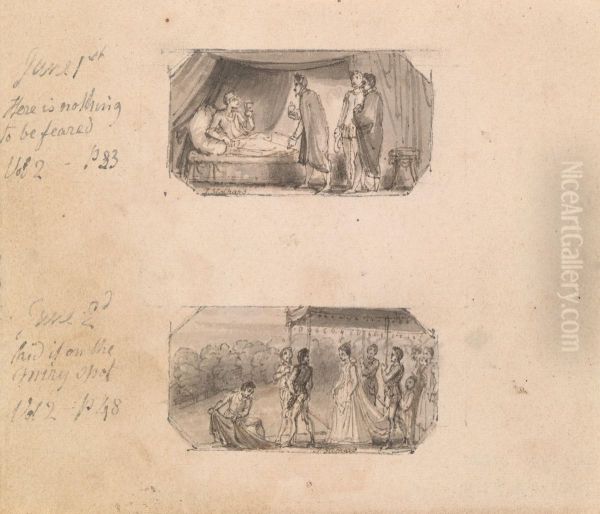 June 1st
Here is nothing
to be feared
Vol 2 - P 33
June 2d
laid it on the
miry spot
Vol 2 - P 48
NiceArtGallery.com